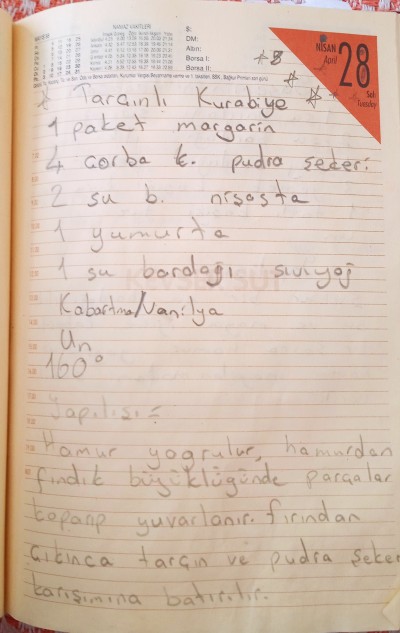 NAMAZ VAKİTLERİ
$:
DM:
Altın:
Borsa I:
Borsa II:
NİSAN
April
28
Salı
Tuesday
Tarçınlı Kurabiye
1 paket margarin
4 çorba k. pudra şekeri
2 su b. nişasta
1 yumurta
1 su bardağı sıvıyağ
Kabartma/Vanilya
Un
160°
Yapılışı:
Hamur yoğrulur, hamurdan
fındık büyüklüğünde parçalar
kopanp yuvarlanır. fırından
çıkınca tarçın ve pudra şeker
karışımına batırılır.